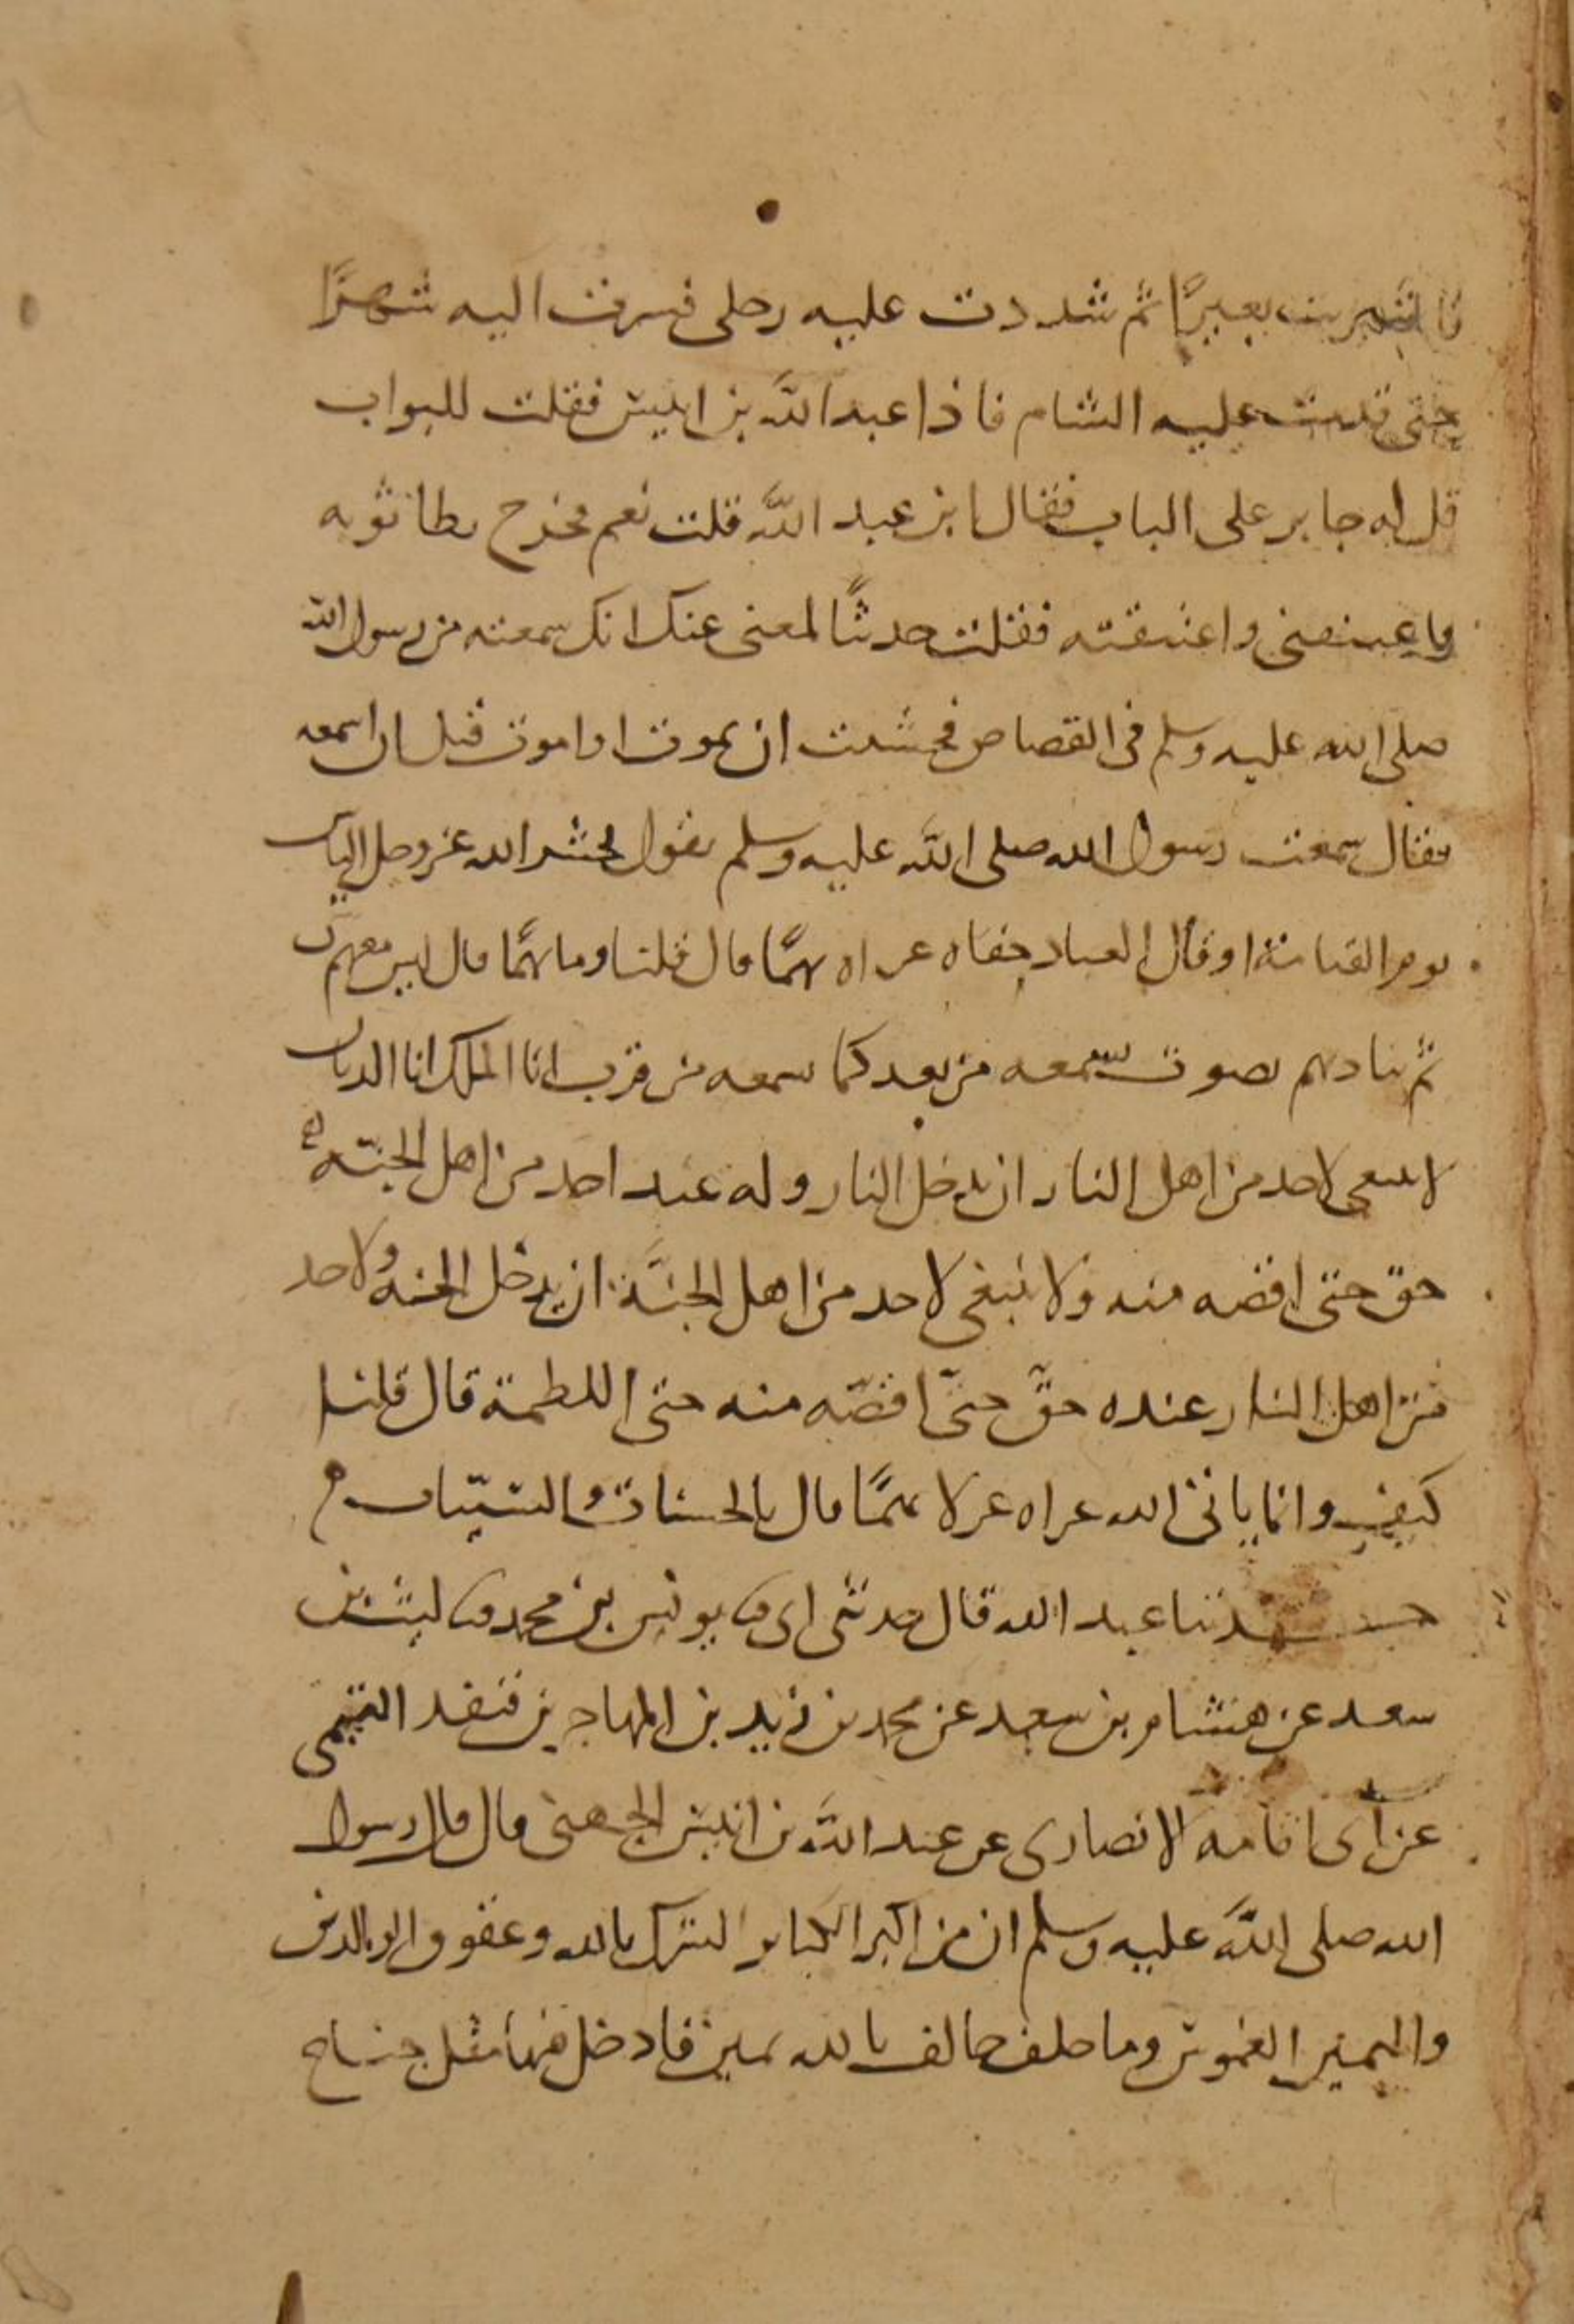 فاشتريت بعيرًا ثم شددت عليه رحلى فسرت اليه شهرًا
حتى قدمت عليه الشام فاذا عبد الله بن انيس فقلت للبواب
قل له جابر على الباب فقال ابن عبد الله قلت نعم فخرج يطا ثوبه
فاعتنقنى واعتنقته فقلت حديثًا بلغنى عنك انك سمعته من رسول الله
صلى الله عليه وسلم فى القصاص فخشيت ان تموت او اموت قبل ان اسمعه
فقال سمعت رسول الله صلى الله عليه وسلم يقول يحشر الله عز وجل الناس
يوم القيامة او قال العباد حفاه عراه بهمًا قال قلنا وما بهمًا قال ليس معهم
ثم يناديهم بصوت يسمعه من بعد كما يسمعه من قرب انا الملك انا الديان
لا ينبغى لاحد من اهل النار ان يدخل النار وله عند احد من اهل الجنّة
حق حتى اقصه منه ولا ينبغى لاحد من اهل الجنَّة ان يدخل الجنة ولاحد
من اهل النار عنده حقّ حتىّ اقصّه منه حتى اللطمة قال قلنا
كيف وانا ياتى الله عراه غرلا بهمًا قال بالحسنات والسيّات
حدثنا عبد الله قال حدثنى ابى ثنا يونس بن محمد ثنا ليث بن
سعد عن هشام بن سعد عن محمد بن زيد بن المهاجر بن قنفد التيمى
عن ابى امامه الانصارى عن عبد الله بن انيس الجهنى قال قال رسول
الله صلى الله عليه وسلم ان من اكبر الكباير الشرك بالله وعقوق الوالدين
واليمين الغموس وما حلف حالف بالله يمين فادخل فيها مثل جناح